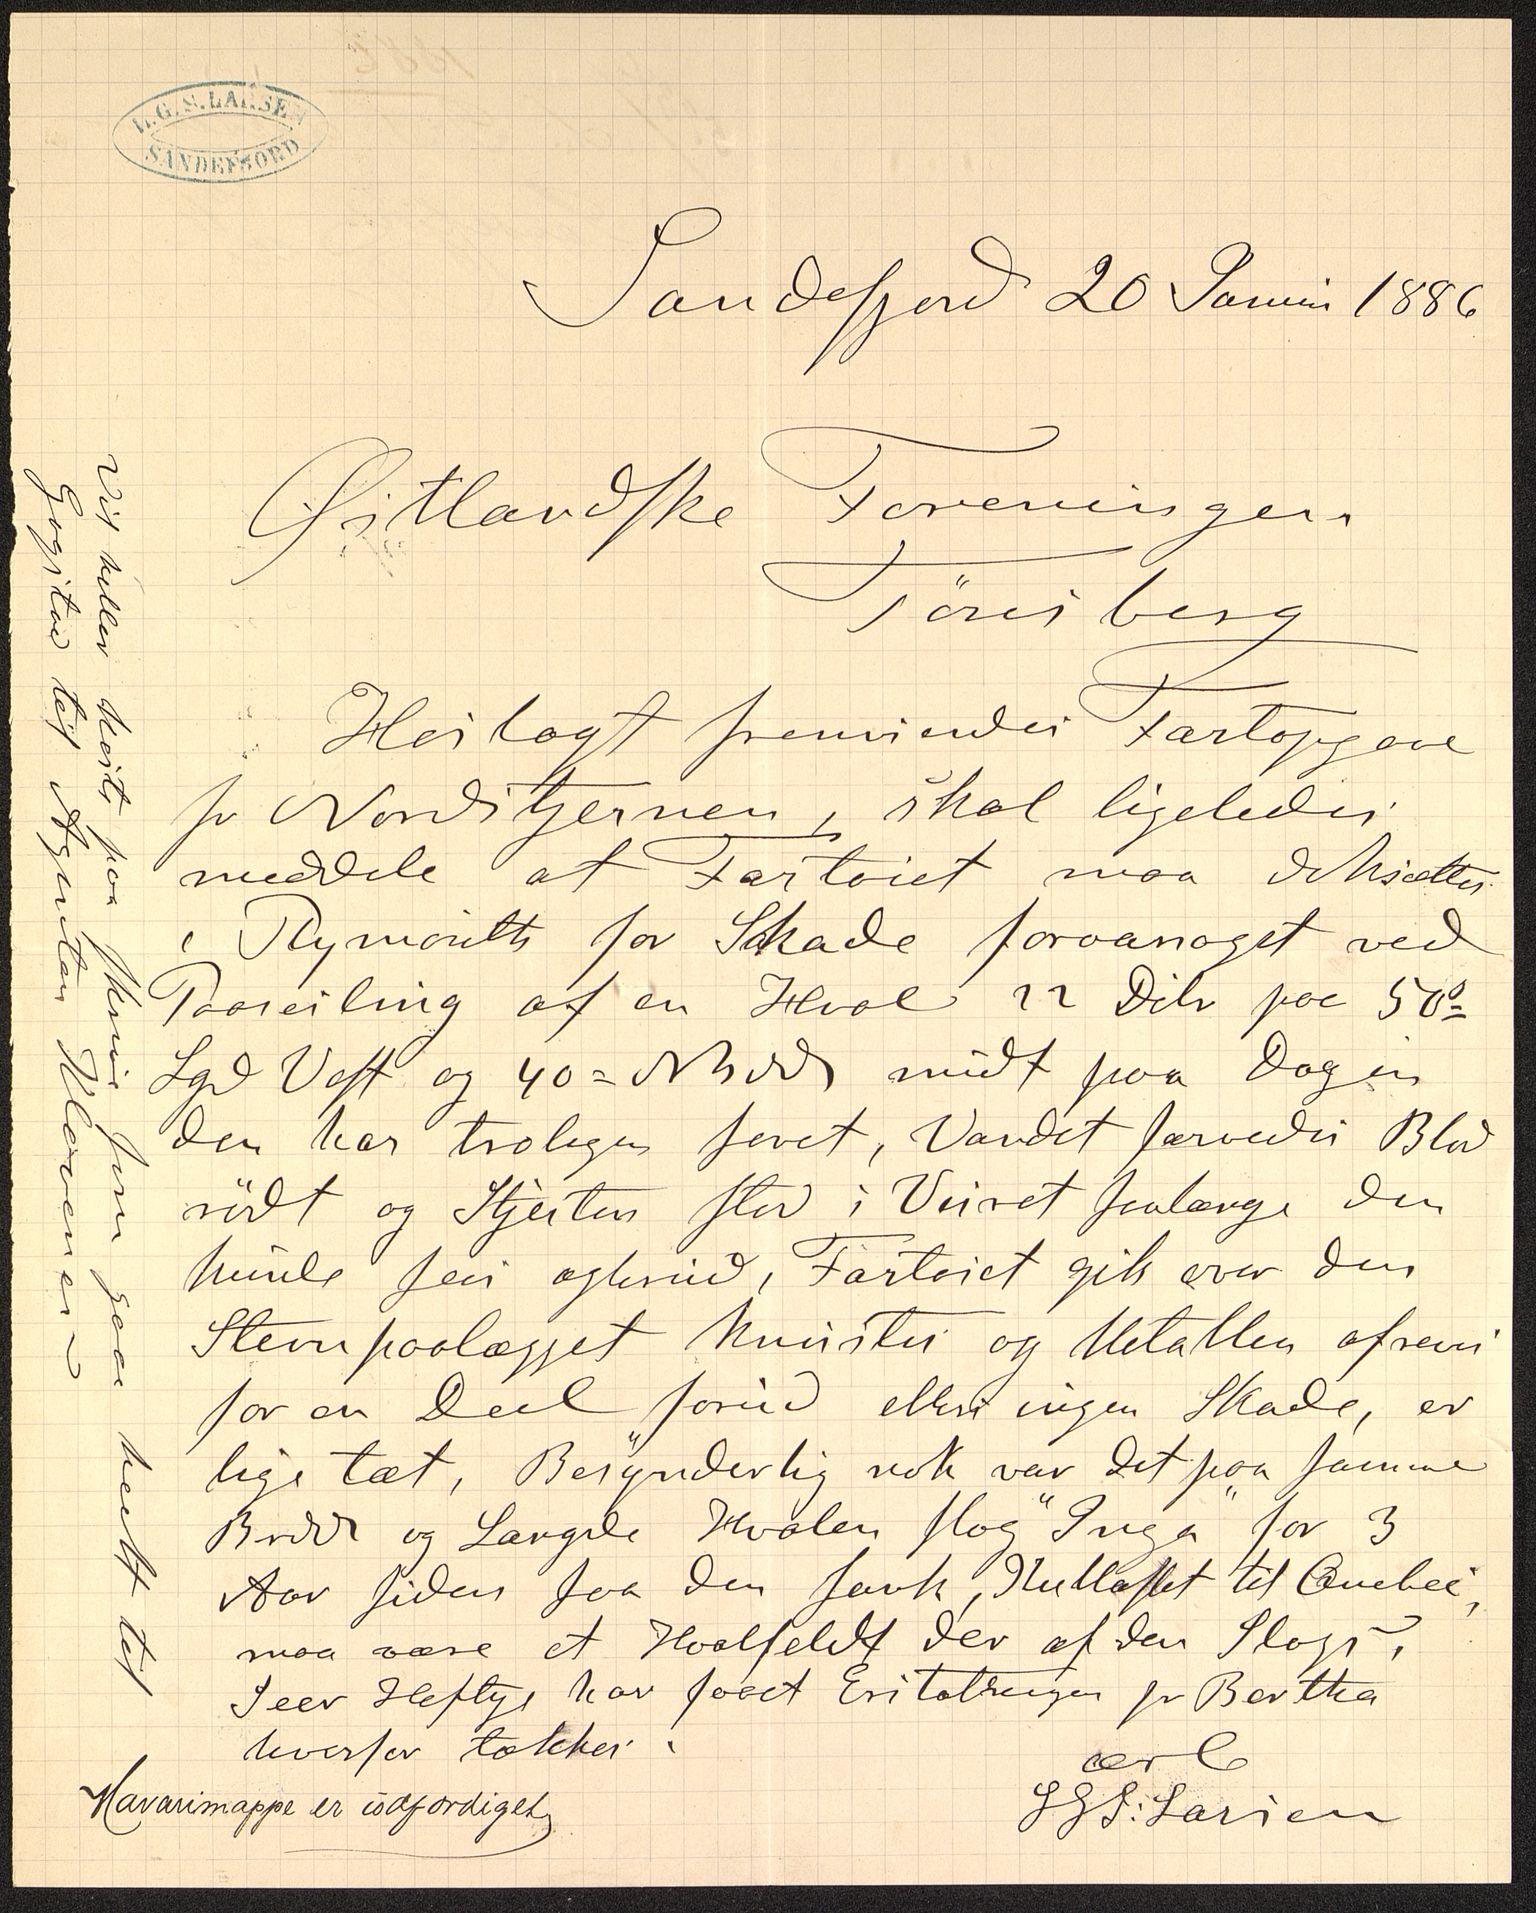 L.G.S. LARSEN
SANDEFJORD
Sandefjord 20 Januar 1886
Østlandske Foreningen
Tönsberg
Heslagt fremsendes Fartopgave
pr Nordstjernen, skal ligeledes
meddele at Fartøiet maa doksættes
i Plymouth for Skade foraarsaget ved
Paaseiling af en Hval 22 Dcbr paa 50°
Lgd Vest og 40° N Brdd midt paa Dagen
den har troligen sovet, Vandet farvedes Blod
rödt og Stjerten stod i Veiret saalænge den
kunde sees agterud, Fartøiet gik over den
Stevnpaalægget knustes og Metallen afrevs
for en Deel forud ellers ingen Skade, er
lige tæt, Besynderlig nok var det paa samme
Brdd og Længde Hvalen slog "Inga" for 3
Aar siden saa den sank, Nullastet til Quebec,
maa være et Hvalfeldt der af den Slags,
Seer Heftye har faaet Erstatningen pr Bertha
hvorfor takkes.
ærb
LGS: Larsen
Havarimappe er udfærdiget
Vil heller heist paa skrive som gaar heelt til
Gogstad til Agenten Klavenes